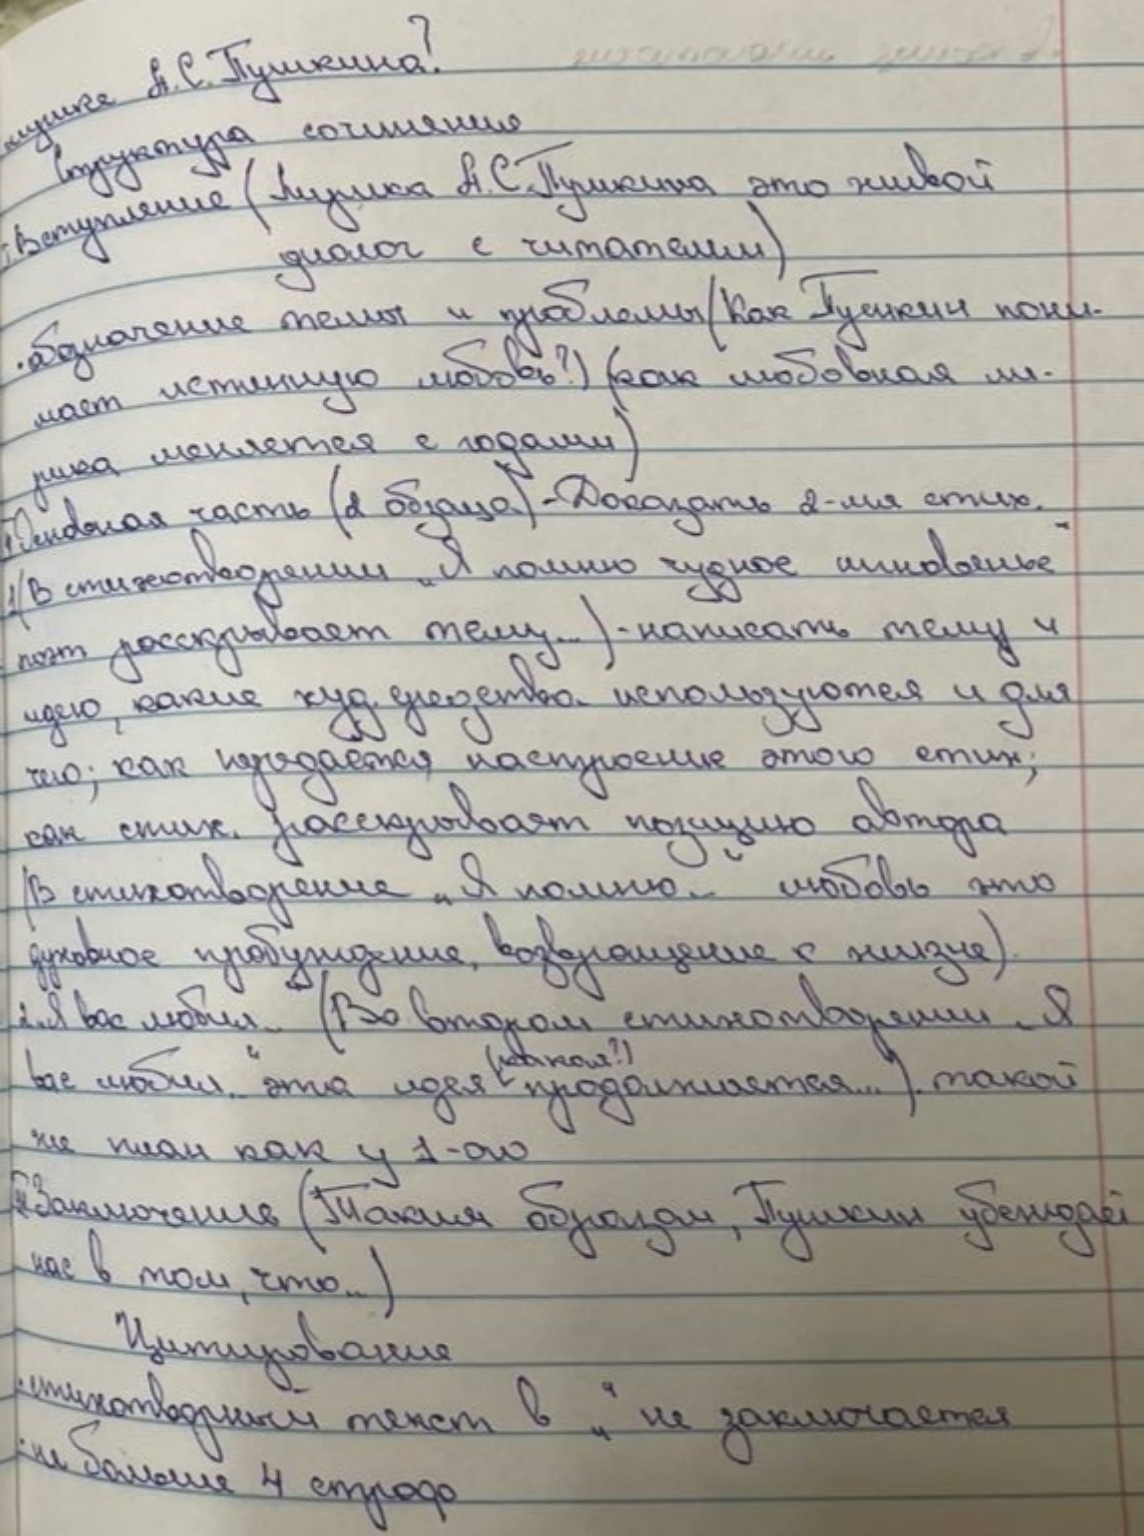 лирике А.С.Пушкина?
Структура сочинения
Вступление (Лирика А.С.Пушкина это живой
диалог с читателем)
·обозначение темы и проблемы (Как Пушкин пони-
мает истинную любовь?) (как любовная ли-
рика меняется с годами)
Основная часть (2 абзаца) - Доказать 2-мя стих.
1 (В стихотворении „Я помню чудное мгновенье"
поэт раскрывает тему...) - написать тему и
идею, какие худ. средства используются и для
чего; как передаётся настроение этого стих;
как стих. раскрывает позицию автора
(В стихотворение „Я помню.." любовь это
духовное пробуждение, возвращение к жизне).
2. Я вас любил.. (Во втором стихотворении „Я
вас любил.." эта идея (какая?) продолжается...). такой
же план как у 1-ого
Заключение (Таким образом, Пушкин убеждает
нас в том, что..)
Цитирование
·стихотворный текст в „" не заключается
·не больше 4 строф